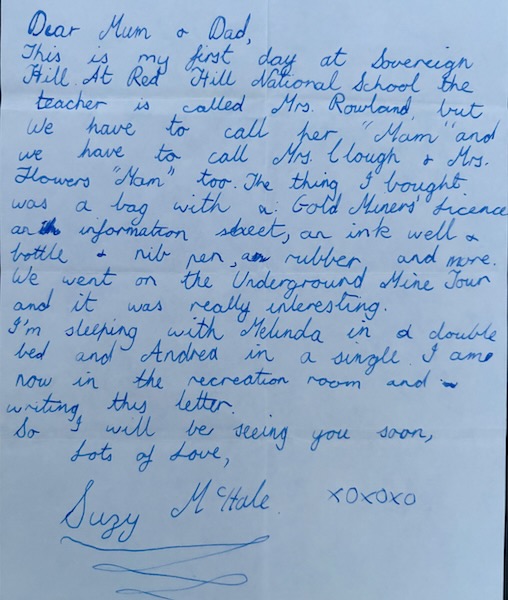 Dear Mum & Dad,
This is my first day at Sovereign
Hill. At Red Hill National School the
teacher is called Mrs. Rowland, but
we have to call her "Mam" and
we have to call Mrs. Clough & Mrs.
Flowers "Mam" too. The thing I bought
was a bag with a Gold Miners' Licence
an information sheet, an ink well &
bottle & nib pen, rubber and more.
We went on the Underground Mine Tour
and it was really interesting.
I'm sleeping with Melinda in a double
bed and Andrea in a single. I am
now in the recreation room and
writing this letter.
So I will be seeing you soon,
Lots of Love,
Suzy McHale. xoxoxo